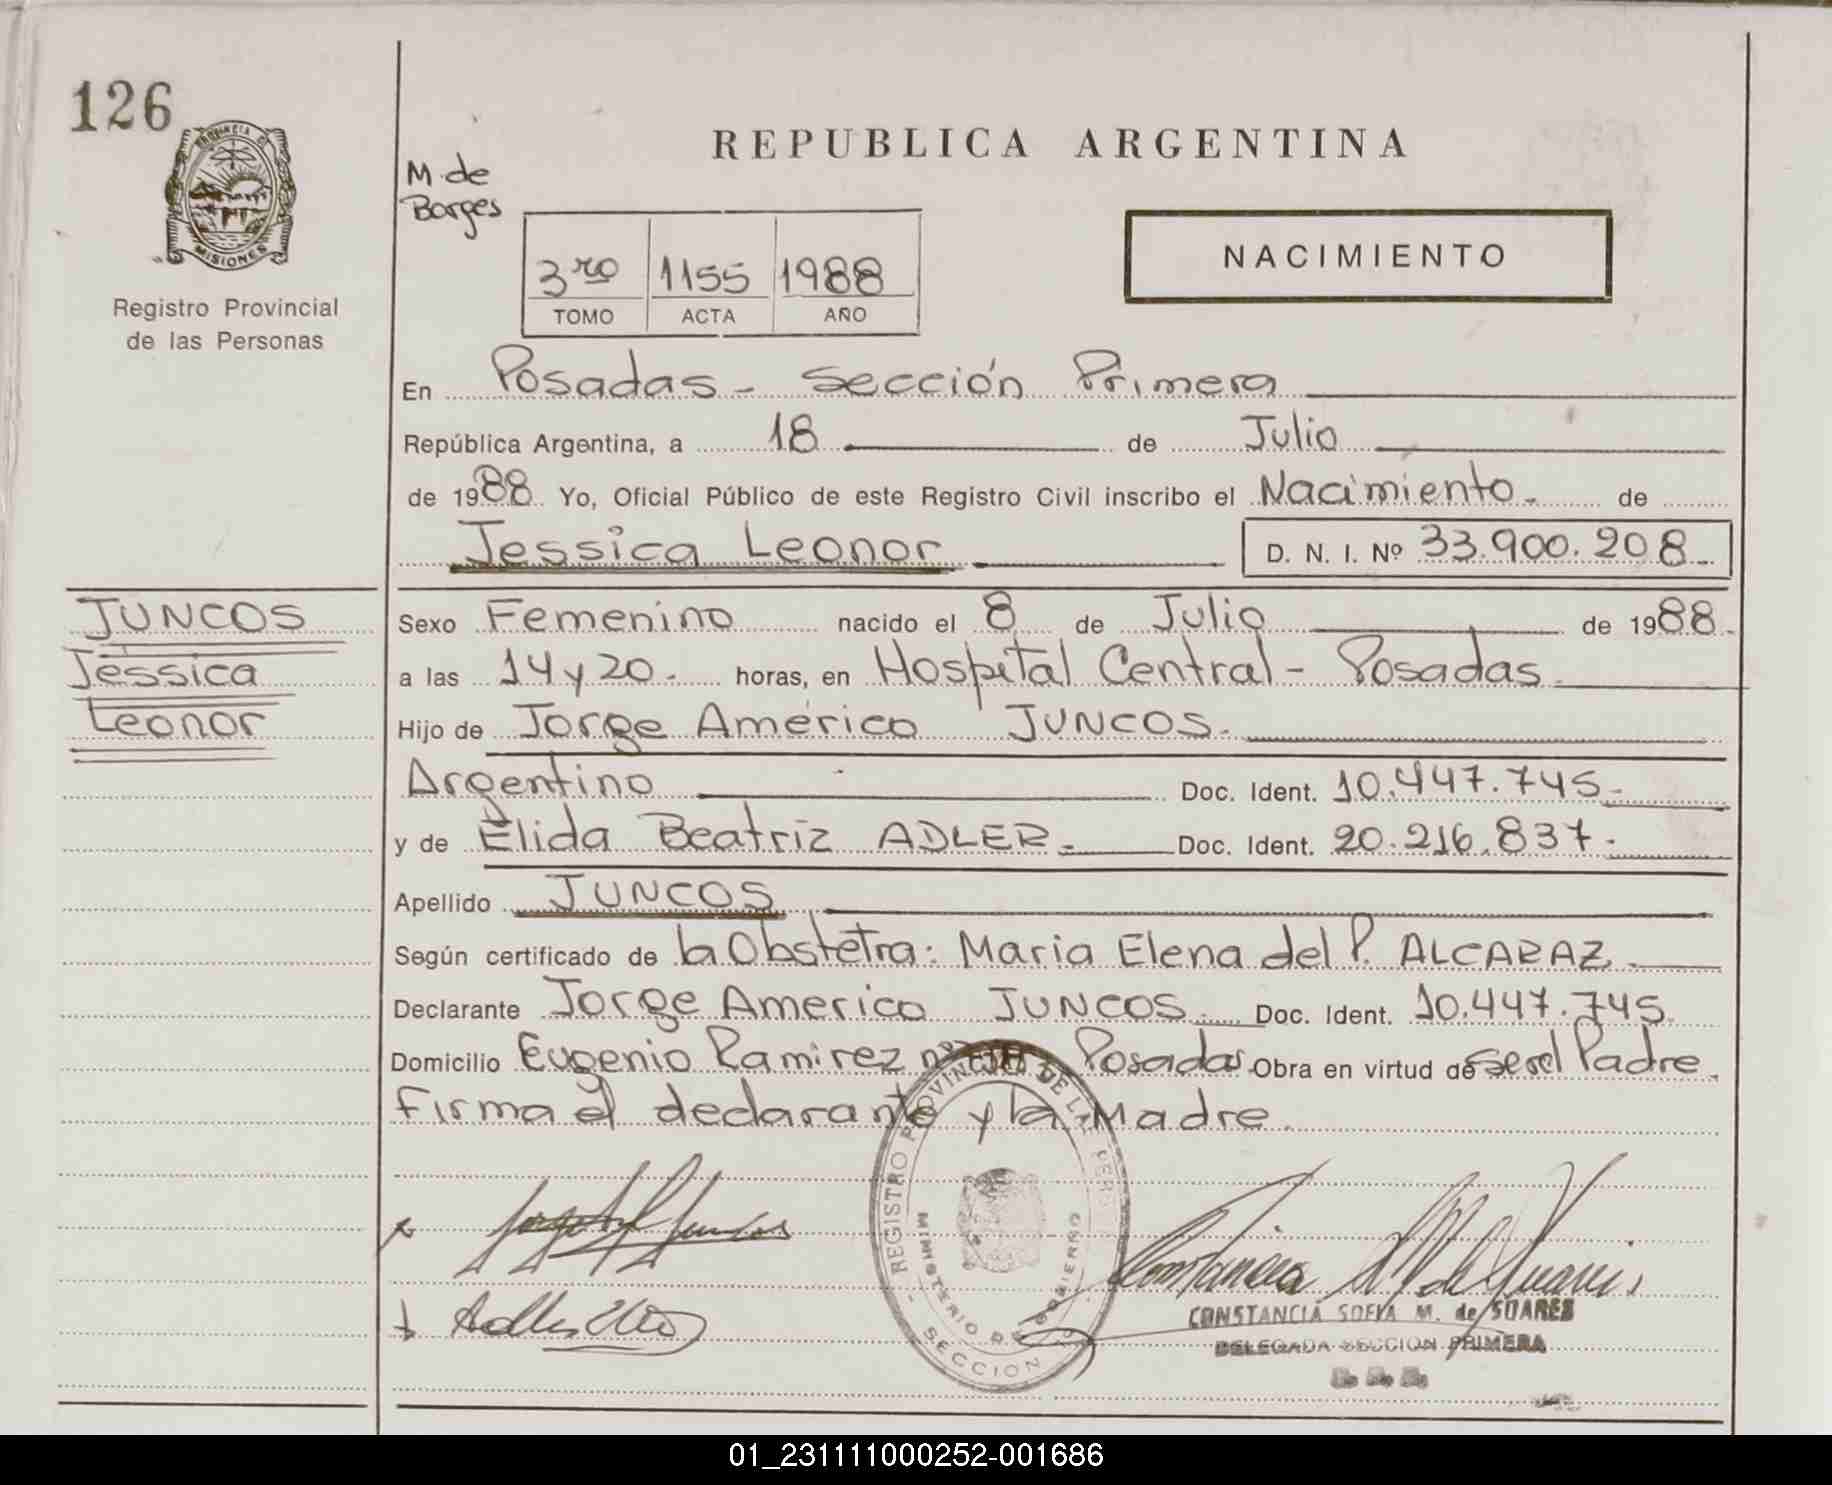 126
PROVINCIA DE
MISIONES
Registro Provincial
de las Personas
M. de
Borges
REPUBLICA ARGENTINA
NACIMIENTO
3ro 1155 1988
TOMO ACTA AÑO
En Posadas - Sección Primera
República Argentina, a 18 de Julio
de 1988 Yo, Oficial Público de este Registro Civil inscribo el Nacimiento. de
Jessica Leonor D. N. I. Nº 33.900.208
JUNCOS
Jessica
Leonor
Sexo Femenino nacido el 8 de Julio de 1988.
a las 14 y 20. horas, en Hospital Central - Posadas.
Hijo de Jorge Américo JUNCOS.
Argentino Doc. Ident. 10.447.745.
y de Elida Beatriz ADLER. Doc. Ident. 20.216.837.
Apellido JUNCOS
Según certificado de la Obstetra: Maria Elena del P. ALCARAZ
Declarante Jorge Americo JUNCOS. Doc. Ident. 10.447.745.
Domicilio Eugenio Ramirez Posadas. Obra en virtud de ser el Padre.
Firma el declarante y la Madre.
REGISTRO PROVINCIAL DE LAS PERS
MINISTERIO DE GOBIERNO
SECCION
CONSTANCIA SOFIA M. de SOARES
DELEGADA SECCION PRIMERA
01_231111000252-001686